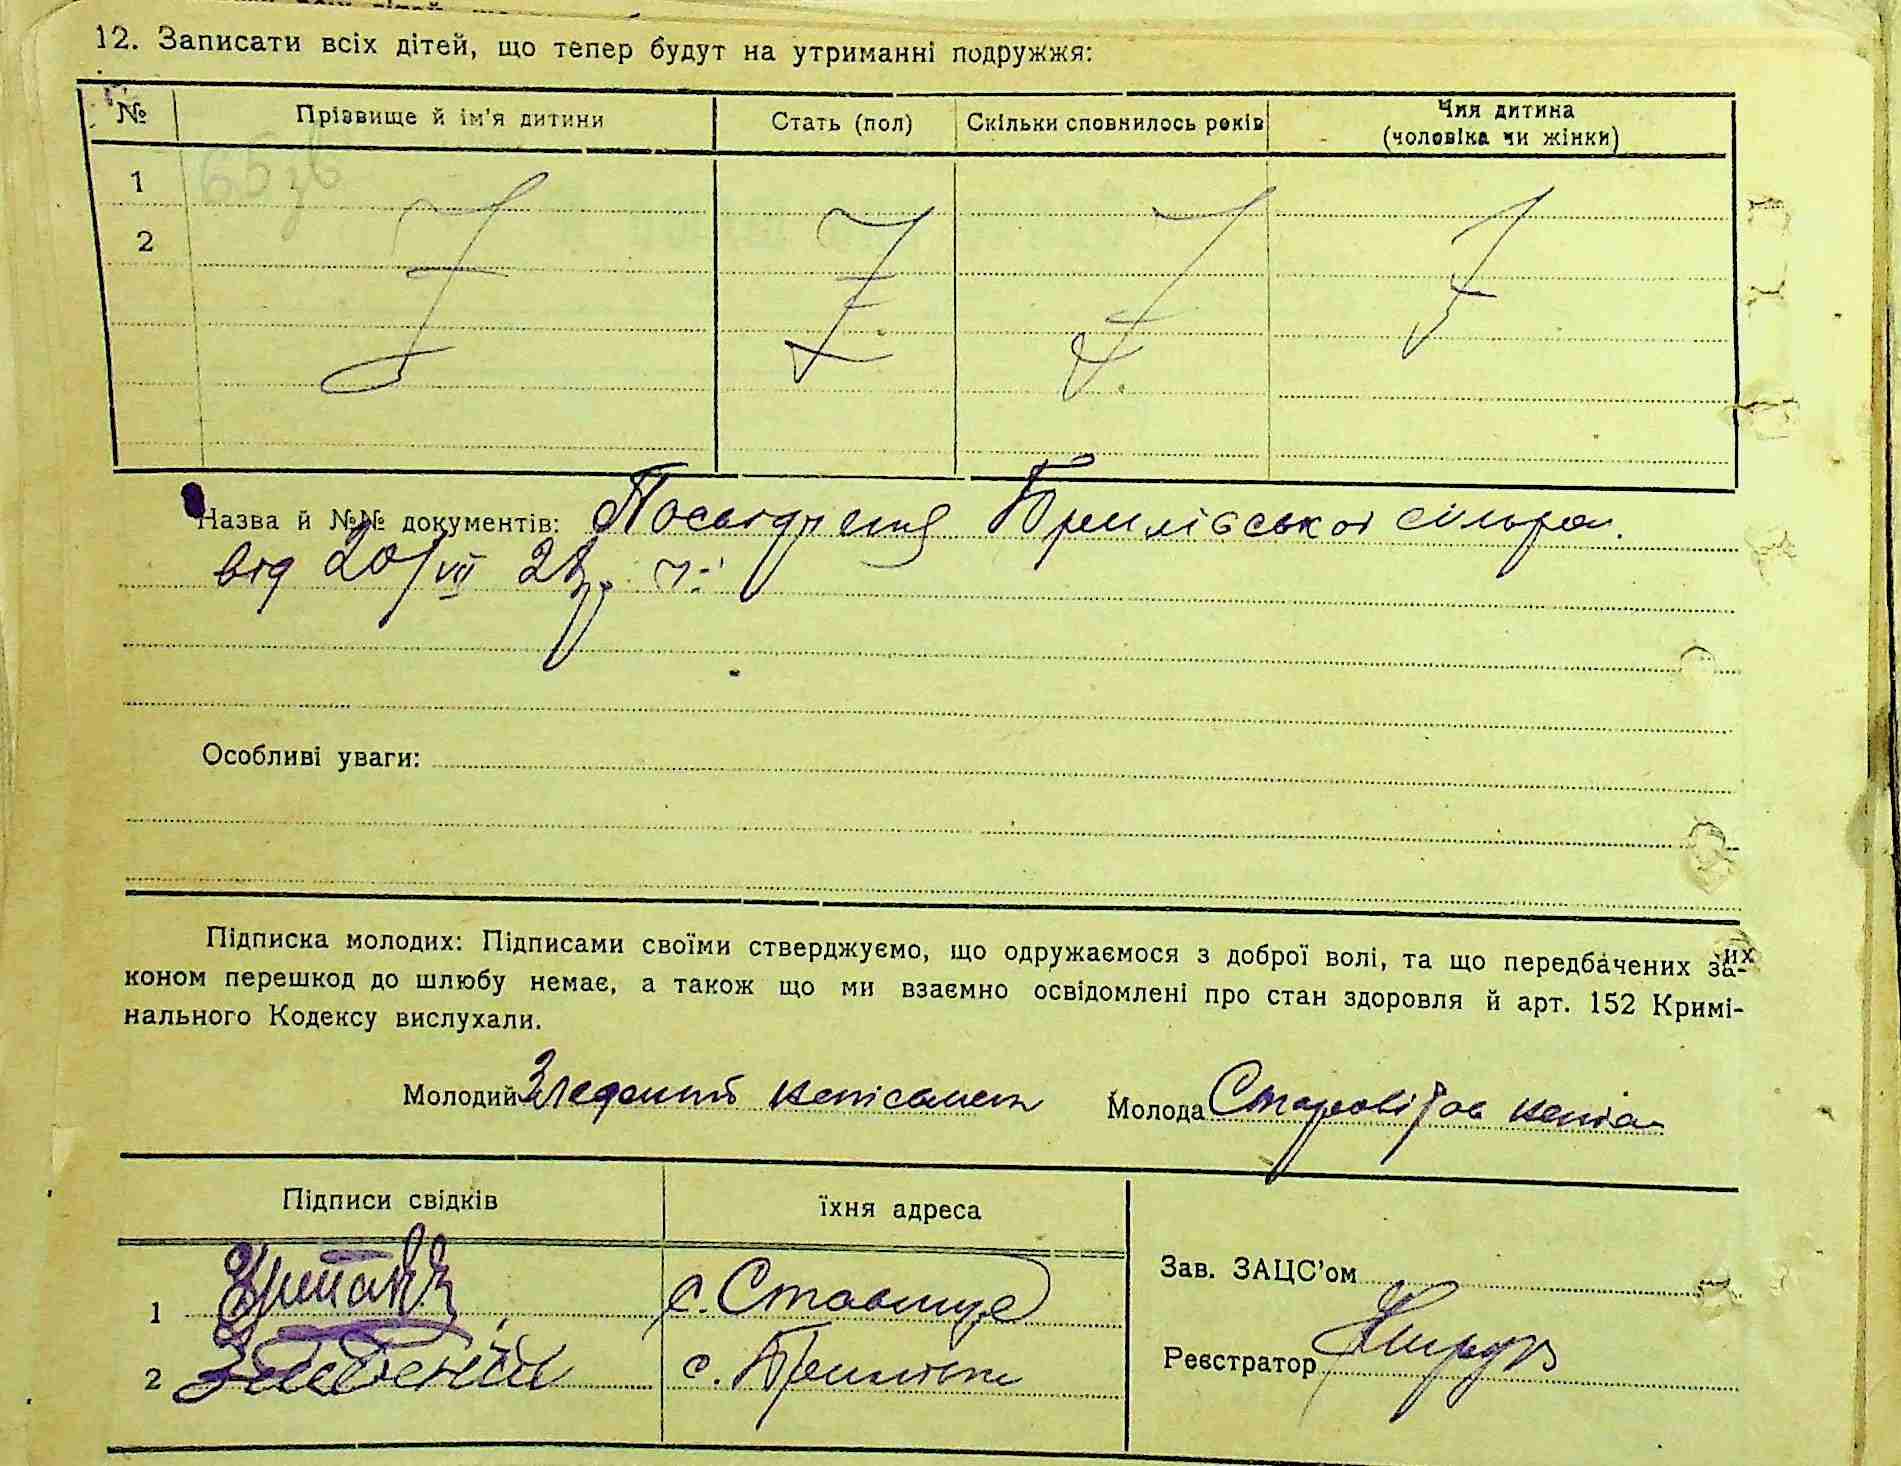 12. Записати всіх дітей, що тепер будут на утриманні подружжя:
№ Прізвище й ім'я дитини Стать (пол) Скільки сповнилось років Чия дитина (чоловіка чи жінки)
1
2
Назва й №№ документів: Посвідченя сільра
від 20/VII 28
Особливі уваги:
Підписка молодих: Підписами своїми стверджуємо, що одружаємося з доброї волі, та що передбачених за-
коном перешкод до шлюбу немає, а також що ми взаємно освідомлені про стан здоровля й арт. 152 Кримі-
нального Кодексу вислухали.
Молодий Молода
Підписи свідків їхня адреса
Зав. ЗАЦС'ом
1 с. Ставище
Реєстратор
2 с.